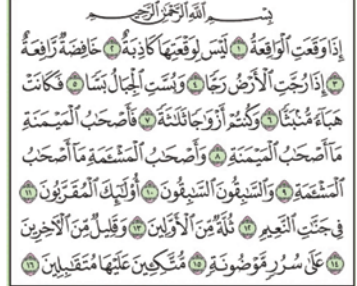 بِسْمِ اللَّهِ الرَّحْمَٰنِ الرَّحِيمِ
إِذَا وَقَعَتِ الْوَاقِعَةُ ١ لَيْسَ لِوَقْعَتِهَا كَاذِبَةٌ ٢ خَافِضَةٌ رَّافِعَةٌ
٣ إِذَا رُجَّتِ الْأَرْضُ رَجًّا ٤ وَبُسَّتِ الْجِبَالُ بَسًّا ٥ فَكَانَتْ
هَبَاءً مُّنۢبَثًّا ٦ وَكُنتُمْ أَزْوَاجًا ثَلَاثَةً ٧ فَأَصْحَابُ الْمَيْمَنَةِ
مَا أَصْحَابُ الْمَيْمَنَةِ ٨ وَأَصْحَابُ الْمَشْـَٔمَةِ مَا أَصْحَابُ
الْمَشْـَٔمَةِ ٩ وَالسَّابِقُونَ السَّابِقُونَ ١٠ أُولَٰئِكَ الْمُقَرَّبُونَ ١١
فِي جَنَّاتِ النَّعِيمِ ١٢ ثُلَّةٌ مِّنَ الْأَوَّلِينَ ١٣ وَقَلِيلٌ مِّنَ الْآخِرِينَ
١٤ عَلَىٰ سُرُرٍ مَّوْضُونَةٍ ١٥ مُّتَّكِـِٔينَ عَلَيْهَا مُتَقَابِلِينَ ١٦